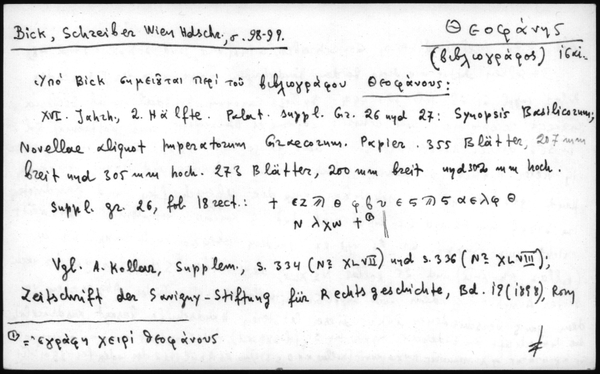 Bick, Schreiber Wien Hdschr., σ. 98-99.
Θεοφάνης
(βιβλιογράφος) ις΄ αἰ.
Ὑπὸ Bick σημειοῦται περὶ τοῦ βιβλιογράφου Θεοφάνους:
XVI. Jahrh., 2. Hälfte. Palat. suppl. Gr. 26 und 27: Synopsis Basilicorum;
Novellae aliquot Imperatorum Graecorum. Papier. 355 Blätter, 207 mm
breit und 305 mm hoch. 273 Blätter, 200 mm breit und 302 mm hoch.
Suppl. gr. 26, fol 18 rect.: +
Ν λ χ ω + ①
Vgl. A. Kollar, Supplem., S. 334 (No XLVII) und S. 336 (No XLVIII);
Zeitschrift der Savigny-Stiftung für Rechtsgeschichte, Bd. 19 (1898), Rom
① = ἐγράφη χειρὶ Θεοφάνους